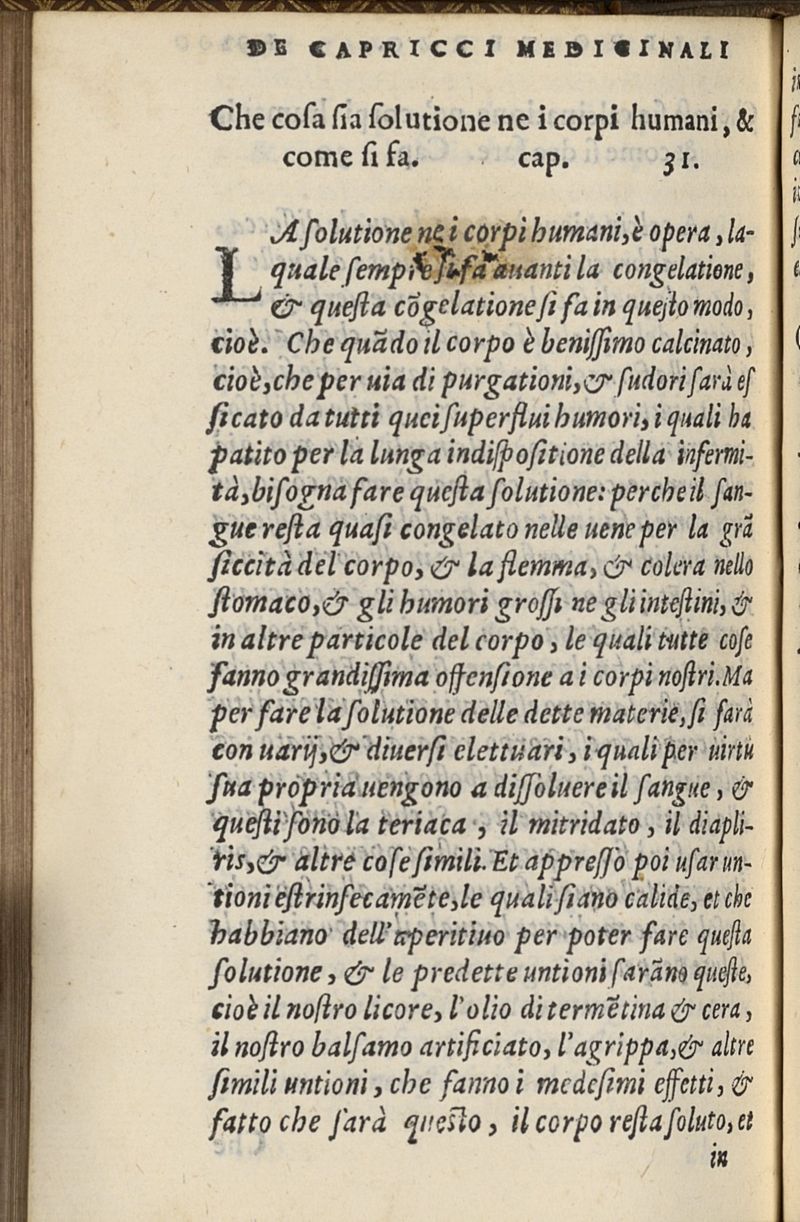 DE CAPRICCI MEDICINALI
Che coſa ſia ſolutione ne i corpi humani, &
come ſi fa. cap. 31.
LA ſolutione ne i corpi humani, è opera, la-
quale ſempre ſi fa auanti la congelatione,
& queſta cõgelatione ſi fa in queſto modo,
cioè. Che quãdo il corpo è beniſſimo calcinato,
cioè, che per uia di purgationi, & ſudori ſarà eſ
ſicato da tutti quei ſuperflui humori, i quali ha
patito per la lunga indiſpoſitione della infermi-
tà, biſogna fare queſta ſolutione: perche il ſan-
gue reſta quaſi congelato nelle uene per la grã
ſiccità del corpo, & la flemma, & colera nello
ſtomaco, & gli humori groſſi ne gli inteſtini, &
in altre particole del corpo, le quali tutte coſe
fanno grandiſſima offenſione a i corpi noſtri. Ma
per fare la ſolutione delle dette materie, ſi farà
con uarij, & diuerſi elettuari, i quali per uirtù
ſua propria uengono a diſſoluere il ſangue, &
queſti ſono la teriaca, il mitridato, il diapli-
ris, & altre coſe ſimili. Et appreſſo poi uſar un-
tioni eſtrinſecamẽte, le quali ſiano calide, et che
habbiano dell'aperitiuo per poter fare queſta
ſolutione, & le predette untioni ſarãno queſte,
cioè il noſtro licore, l'olio di termẽtina & cera,
il noſtro balſamo artificiato, l'agrippa, & altre
ſimili untioni, che fanno i medeſimi effetti, &
fatto che ſarà queſto, il corpo reſta ſoluto, et
in